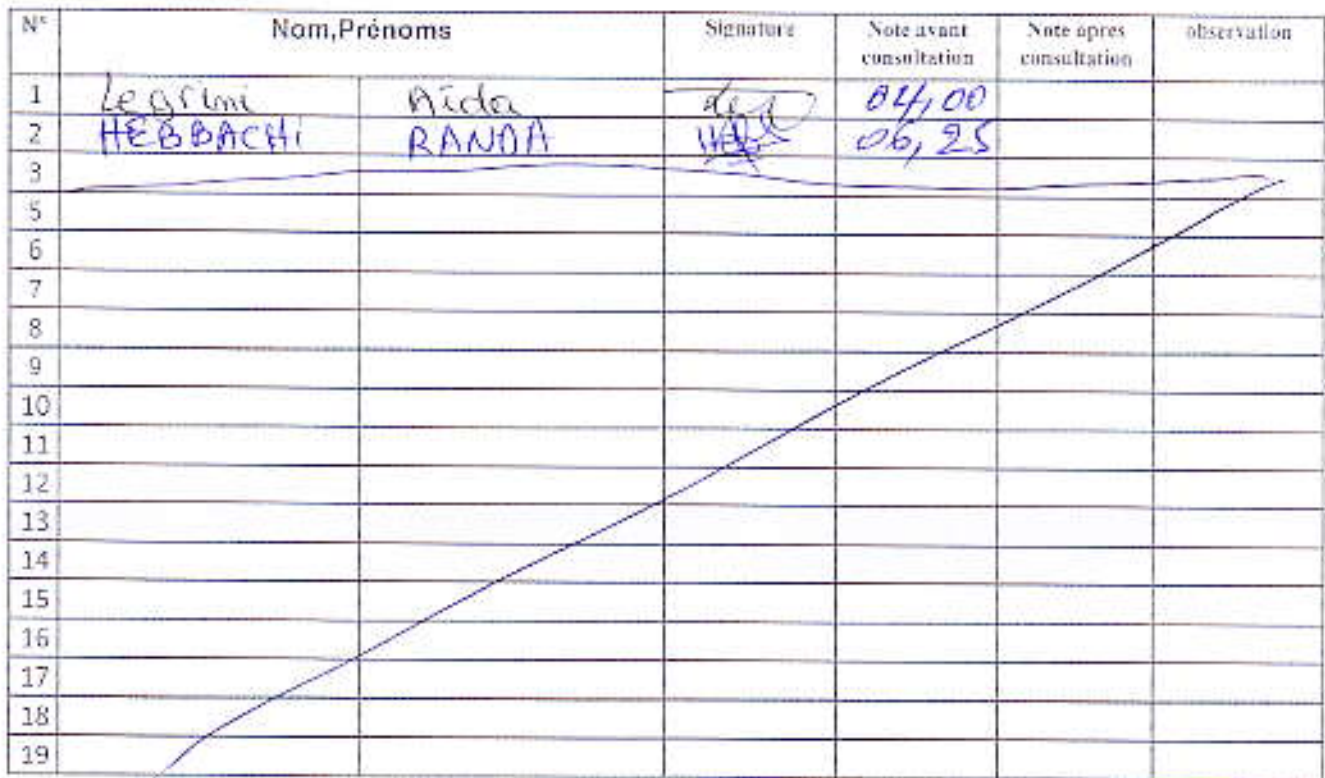 N° Nom,Prénoms Signature Note avant consultation Note après consultation observation
1 Legrini Aida 04,00
2 HEBBACHI RANDA 06,25
3
5
6
7
8
9
10
11
12
13
14
15
16
17
18
19